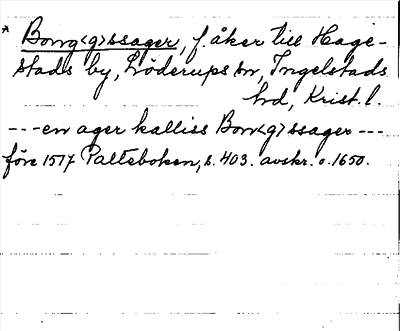 * Bong<g>ssager, f. åker till Hage-
stads by, Löderups sn, Ingelstads
hd, Krist. l.
---en ager kalliss Bon<g>ssager ---
före 1517 Palteboken, s. 403. avskr. o. 1650.